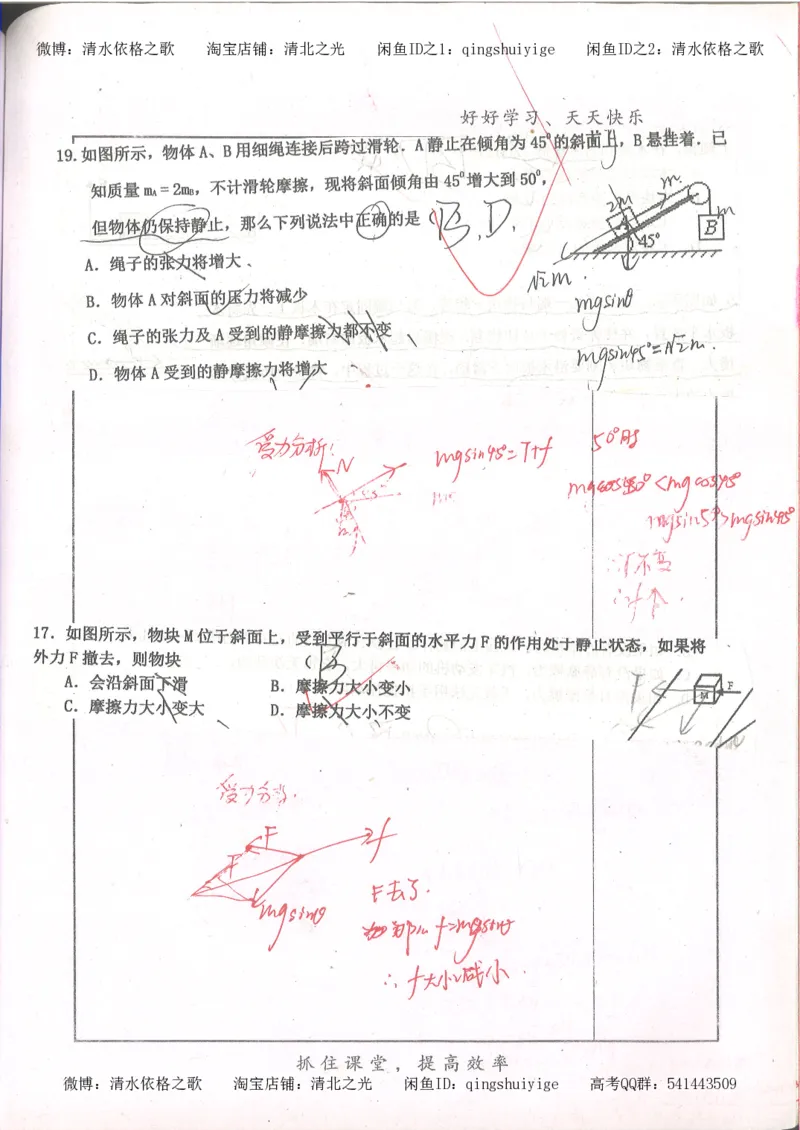 微博：清水依格之歌 淘宝店铺：清北之光 闲鱼ID之1：qingshuiyige 闲鱼ID之2：清水依格之歌
好好学习、天天快乐
19.如图所示，物体A、B用细绳连接后跨过滑轮．A静止在倾角为45⁰的斜面上，B悬挂着．已
知质量 mA＝2mB，不计滑轮摩擦，现将斜面倾角由45⁰增大到50⁰，
但物体仍保持静止，那么下列说法中正确的是（ B、D,
2m
m
m
B
45⁰
A．绳子的张力将增大
√2m.
B．物体A对斜面的压力将减少
mgsinθ
C．绳子的张力及A受到的静摩擦力都不变
mgsin45°=√2m.
D．物体A受到的静摩擦力将增大
受力分析：
N
mgsin45°=T+f
50°时
mgcos50°<mgcos45°
mgsin50°>mgsin45°
∴T不变
∴f个.
17．如图所示，物块M位于斜面上，受到平行于斜面的水平力F的作用处于静止状态，如果将
外力F撤去，则物块 （B
A．会沿斜面下滑 B．摩擦力大小变小
C．摩擦力大小变大 D．摩擦力大小不变
M
F
受力分析.
F
f
F
mgsinθ
F去了.
那么f=mgsinθ
∴f大小减小.
抓住课堂，提高效率
微博：清水依格之歌 淘宝店铺：清北之光 闲鱼ID：qingshuiyige 高考QQ群：541443509